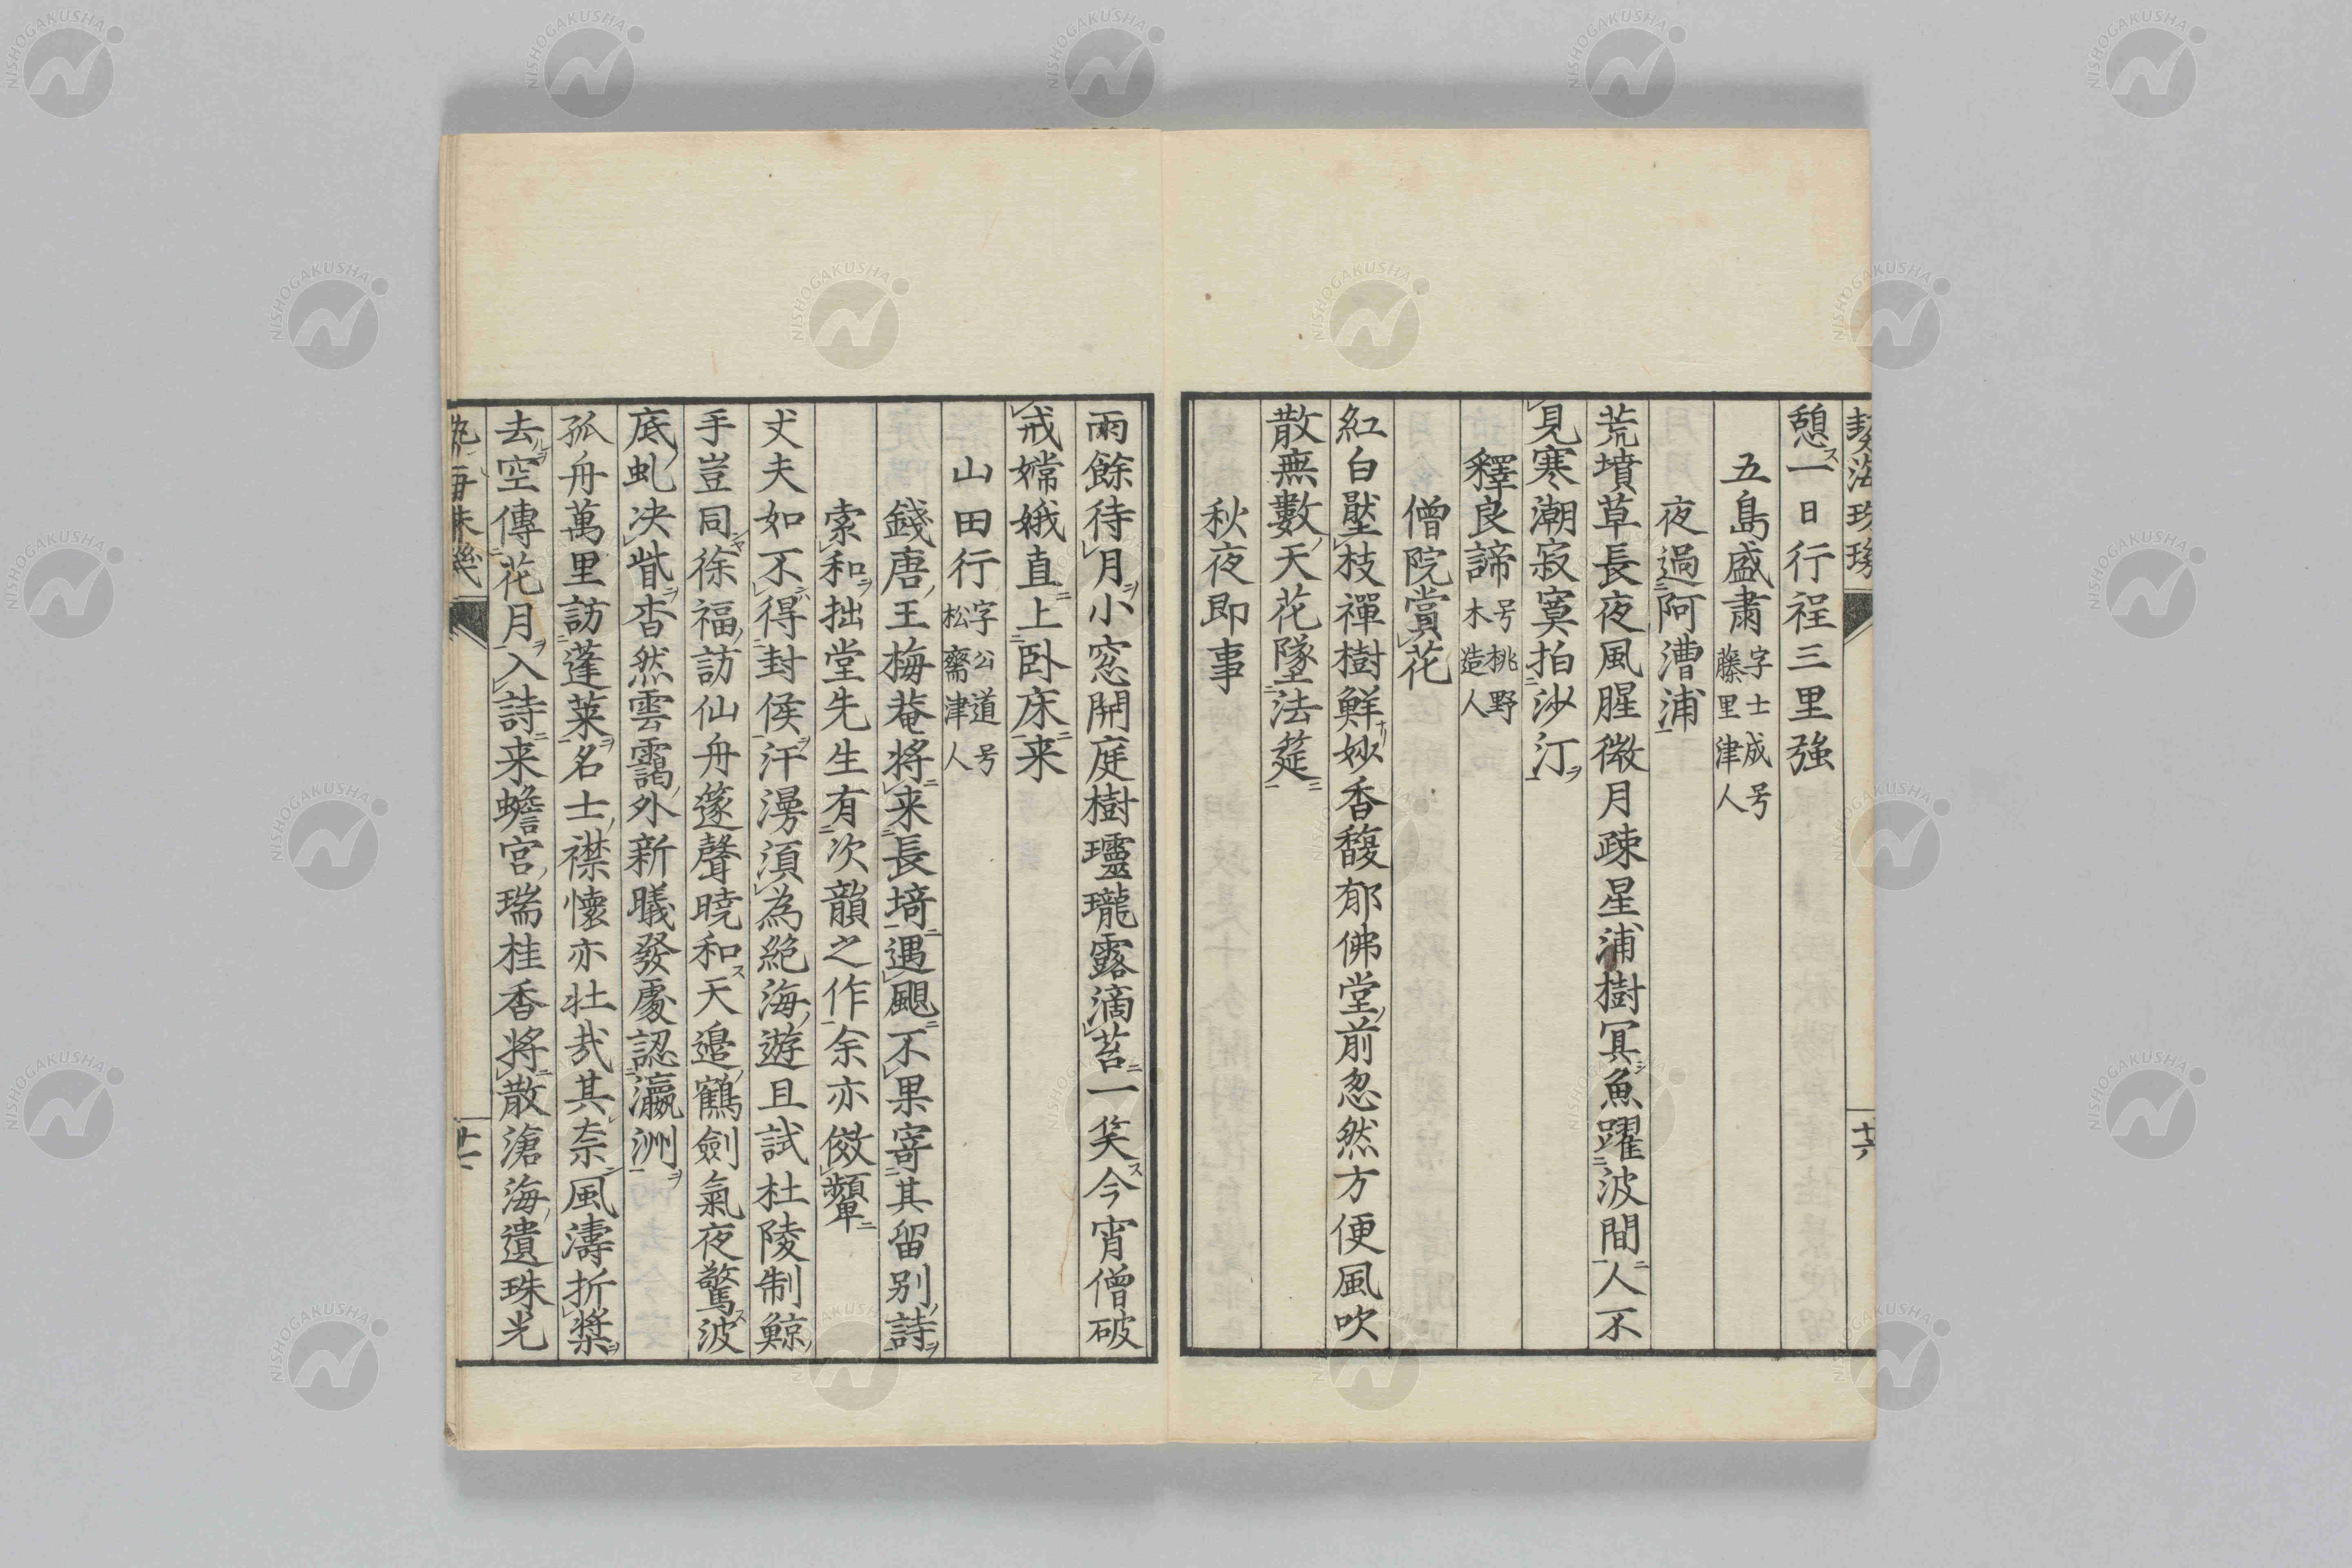 憩一日行程三里強
五島盛肅 字士成号藤里津人
夜過阿漕浦
荒墳草長夜風腥微月疎星浦樹冥魚躍波間人不
見寒潮寂寞拍沙汀
釋良諦 号桃野木造人
僧院賞花
紅白壓枝禪樹鮮妙香馥郁佛堂前忽然方便風吹
散無數天花墜法莚
秋夜即事
雨餘待月小窓開庭樹瓏露滴苔一笑今宵僧破
戒嫦娥直上卧床来
山田行 字公道号松齋津人
錢唐王梅菴將来長埼遇颶不果寄其留別詩
索和拙堂先生有次韻之作余亦傚顰
丈夫如不得封侯汗漫須為絶海遊且試杜陵制鯨
手豈同徐福訪仙舟篴聲曉和天邉鶴劍氣夜驚波
底虬决眥杳然雲靄外新曦發處認瀛洲
孤舟萬里訪蓬莱名士襟懷亦壮哉其奈風濤折槳
去空傳花月入詩来蟾宮瑞桂香將散滄海遺珠光